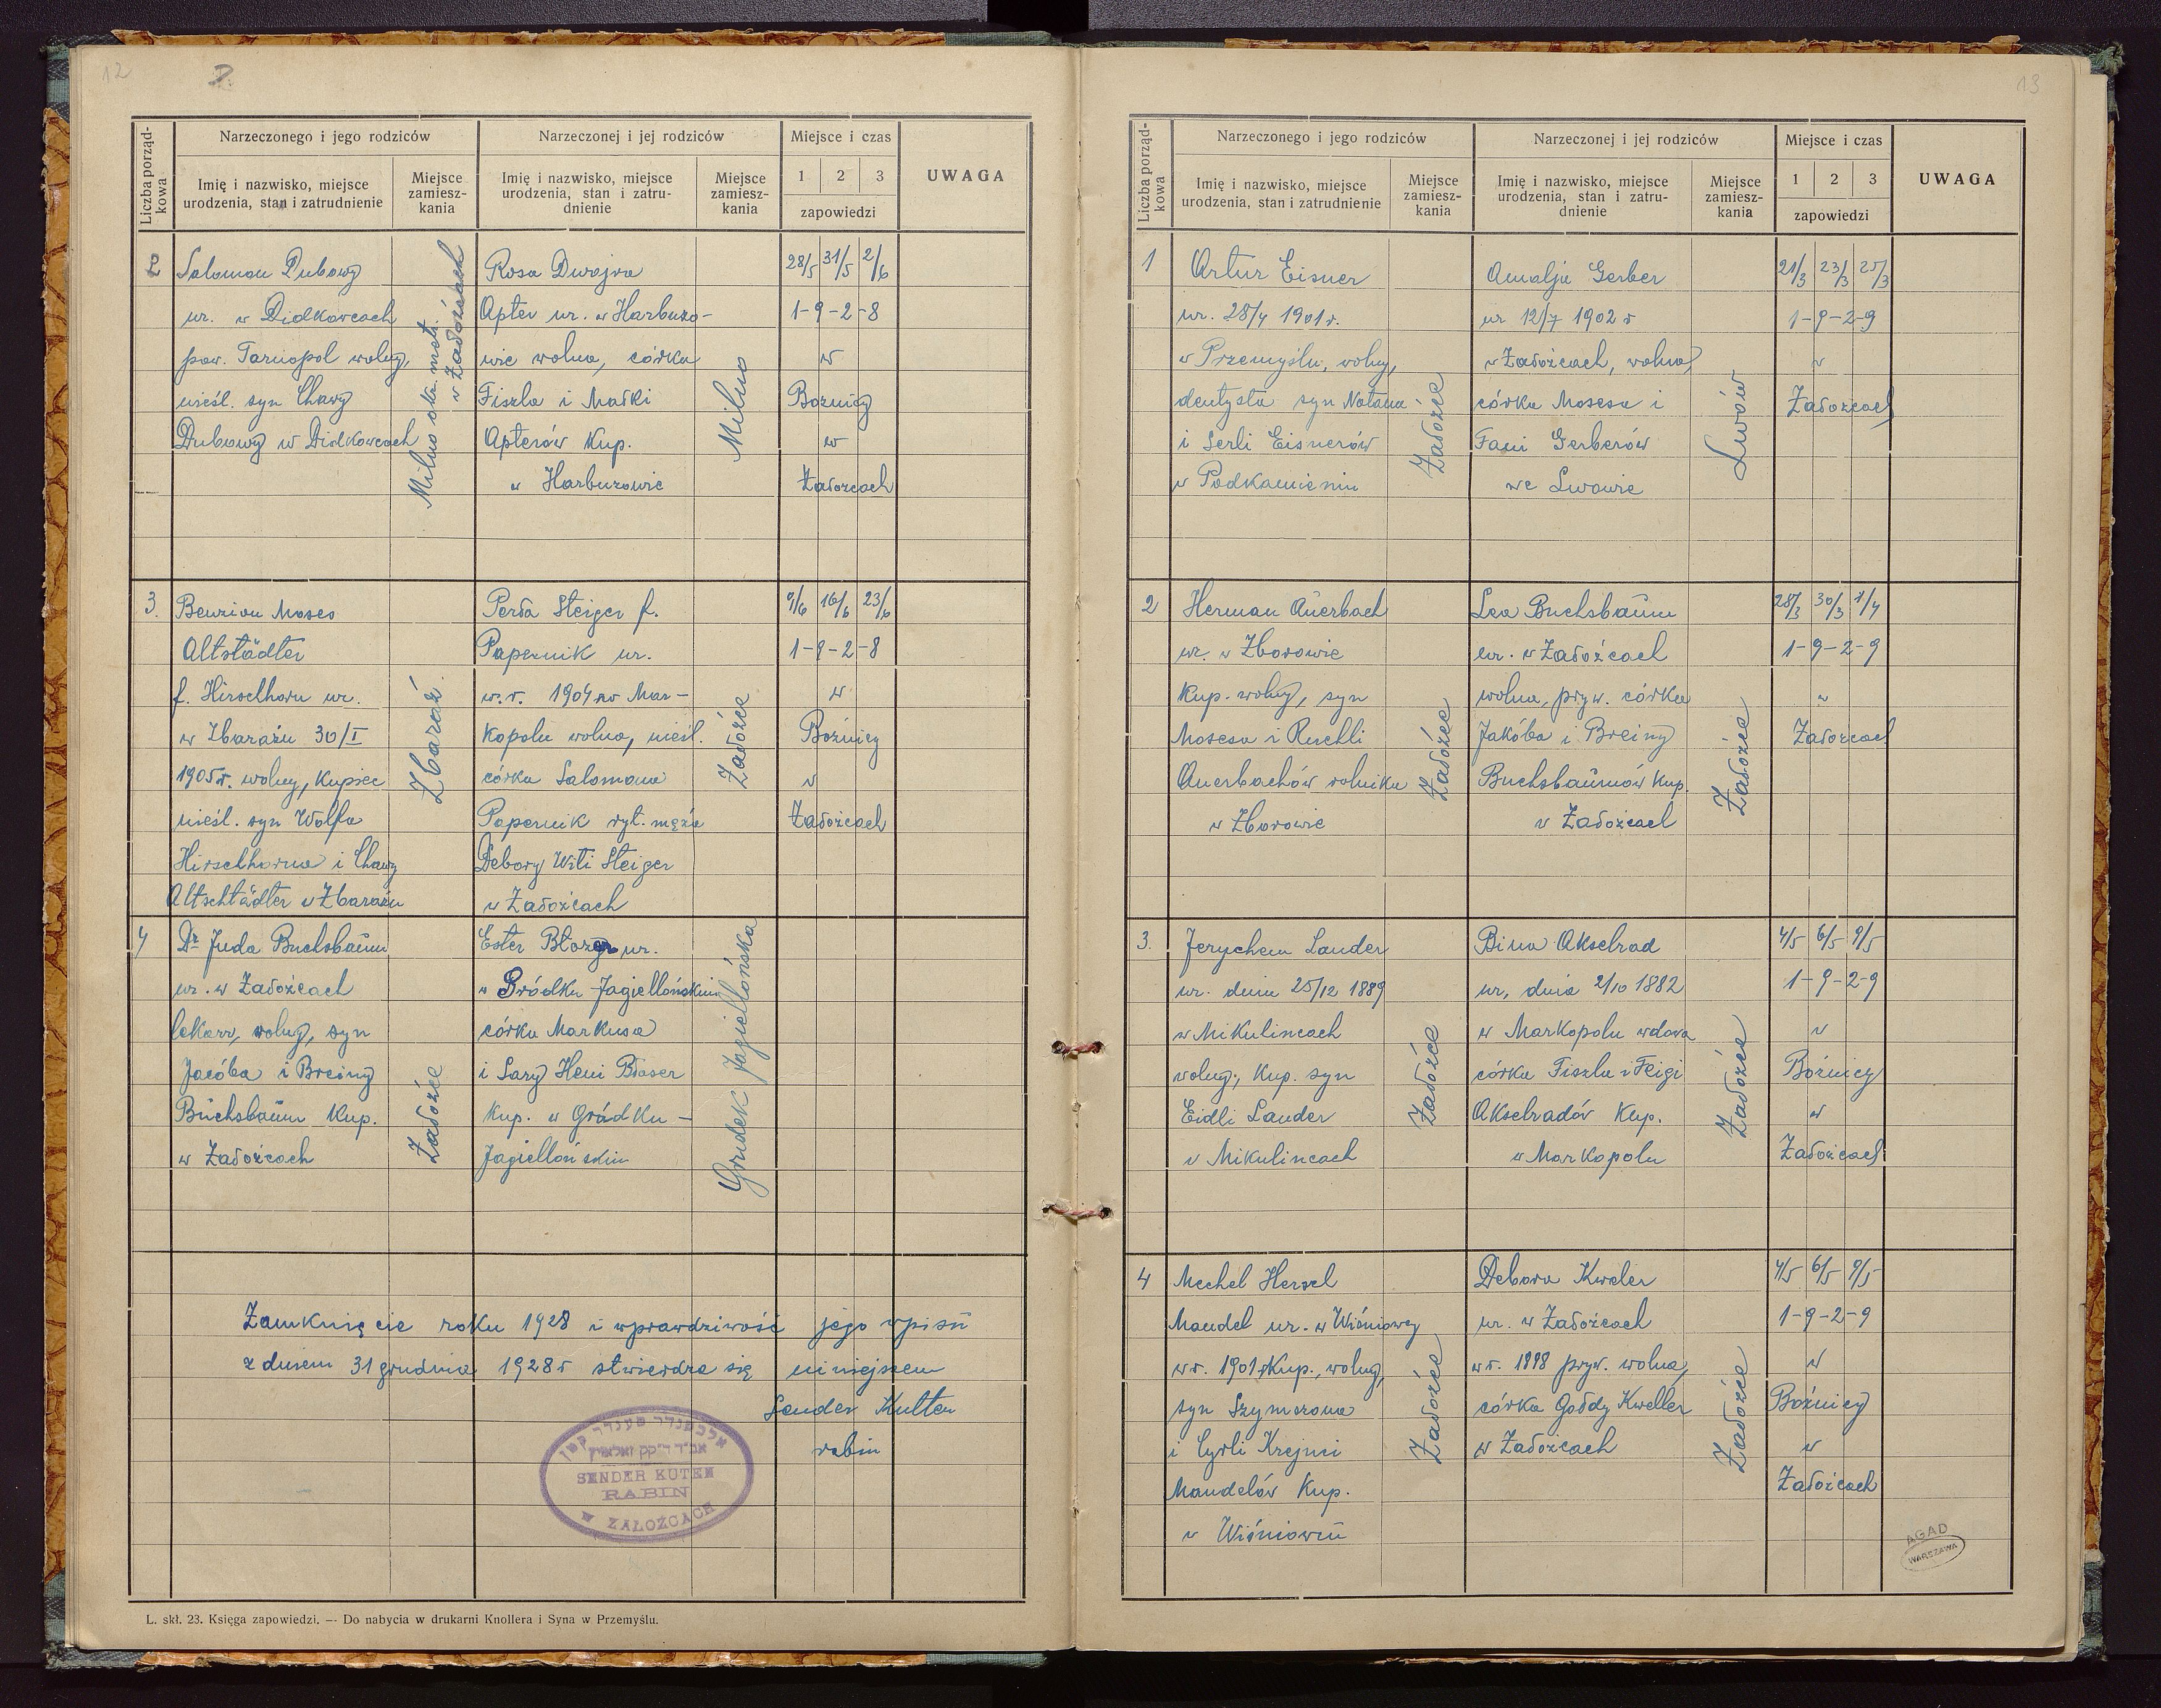 12
2.
Liczba porząd-
kowa
Narzeczonego i jego rodziców
Narzeczonej i jej rodziców
Miejsce i czas
UWAGA
Imię i nazwisko, miejsce
urodzenia, stan i zatrudnienie
Miejsce
zamiesz-
kania
Imię i nazwisko, miejsce
urodzenia, stan i zatru-
dnienie
Miejsce
zamiesz-
kania
1 2 3
zapowiedzi
2
Salomon Dubowy
ur. w Didkowcach
pow. Tarnopol wolny,
nieśl. syn Chawy
Dubowy w Didkowcach
Milno okr. metr.
w Załoścach
Rosa Dwojra
Apter ur. w Harbuzo-
wie wolna, córka
Fiszla i Małki
Apterów Kup.
w Harbuzowie
Milno
28/5 31/5 2/6
1-9-2-8
w
Bożnicy
w
Załozcach
3.
Benzion Moses
Altstädter
f. Hirschhorn ur.
w Zbarażu 30/I
1905 r. wolny, Kupiec
nieśl. syn Wolfa
Hirschhorna i Chawy
Altschtädter w Zbarażu
Zbaraż
Perła Steiger f.
Papernik ur.
w. r. 1904 w Mar-
kopolu wolna, nieśl.
córka Salomona
Papernik ryt. męża
Debory Witi Steiger
w Załoźcach
Załoźce
9/6 16/6 23/6
1-9-2-8
w
Bożnicy
w
Załoźcach
4
Dr Juda Buchsbaum
ur. w Załoźcach
lekarz, wolny, syn
Jacóba i Breiny
Buchsbaum Kup.
w Załoźcach
Załoźce
Ester Błozer ur.
w Gródku Jagiellońskim
córka Markusa
i Sary Heni Błoser
Kup. w Gródku -
Jagiellońskim
Grudek Jagiellońska
Zamknięcie roku 1928 i wprawdziwość jego wpisu
z dniem 31 grudnia 1928 r stwierdza się niniejszem
Sender Kutten
rabin
SENDER KUTEN
RABIN
W ZAŁOŹCACH
L. skł. 23. Księga zapowiedzi. — Do nabycia w drukarni Knollera i Syna w Przemyślu.
13
Liczba porząd-
kowa
Narzeczonego i jego rodziców
Narzeczonej i jej rodziców
Miejsce i czas
UWAGA
Imię i nazwisko, miejsce
urodzenia, stan i zatrudnienie
Miejsce
zamiesz-
kania
Imię i nazwisko, miejsce
urodzenia, stan i zatru-
dnienie
Miejsce
zamiesz-
kania
1 2 3
zapowiedzi
1
Artur Eisner
ur. 28/4 1901 r.
w Przemyślu, wolny,
dentysta syn Natana
i Serli Eisnerów
w Podkamieniu
Załoźce
Amalja Gerber
ur 12/7 1902 r
w Załoźcach, wolna,
córka Mosesa i
Fani Gerberów
we Lwowie
Lwów
21/3 23/3 25/3
1-9-2-9
w
Załozcach
2
Herman Auerbach
ur. w Zborowie
Kup. wolny, syn
Mosesa i Ruchli
Auerbachów rolnika
w Zborowie
Załoźce
Lea Buchsbaum
ur. w Załoźcach
wolna, pryw. córka
Jakóba i Breiny
Buchsbaumów Kup.
w Załoźcach
Załoźce
28/3 30/3 1/4
1-9-2-9
w
Załozcach
3.
Jerychem Lauder
ur. dniu 25/12 1889
w Mikulincach
wolny, Kup. syn
Eidli Lauder
w Mikulincach
Załoźce
Bina Akselrad
ur, dnia 2/10 1882
w Markopolu wdowa
córka Fiszla i Feigi
Akselradów Kup.
w Markopolu
Załoźce
4/5 6/5 9/5
1-9-2-9
w
Bożnicy
w
Załoźcach
4
Mechel Hersel
Mandel ur. w Wiśniowcy
w r. 1901, Kup., wolny,
syn Szymszona
i Cyrli Krejnci
Mandelów Kup.
w Wiśniowcu
Załoźce
Debora Kweler
ur. w Załoźcach
w r. 1898 pryw. wolna,
córka Gołdy Kweller
w Załoźcach
Załoźce
4/5 6/5 9/5
1-9-2-9
w
Bożnicy
w
Załoźcach
AGAD
WARSZAWA